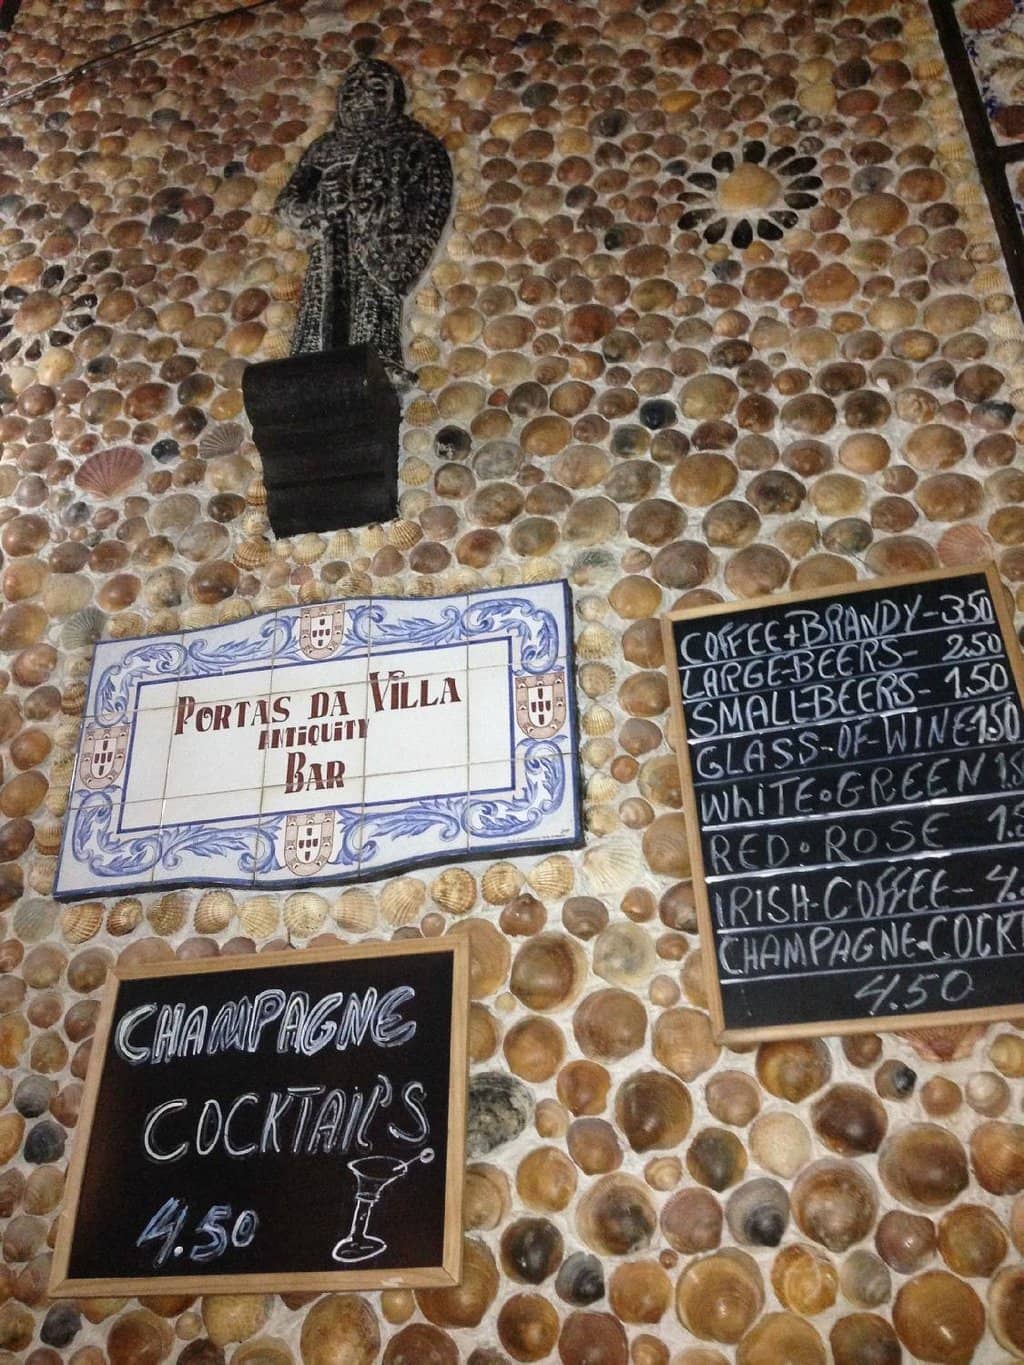 PORTAS DA VILLA
ANTIQUITY
BAR
COFFEE+BRANDY-3.50
LARGE-BEERS-2.50
SMALL-BEERS-1.50
GLASS-OF-WINE 1.50
WHITE•GREEN
RED•ROSE
IRISH-COFFEE-
CHAMPAGNE-
4.50
CHAMPAGNE
COCKTAIL'S
4.50